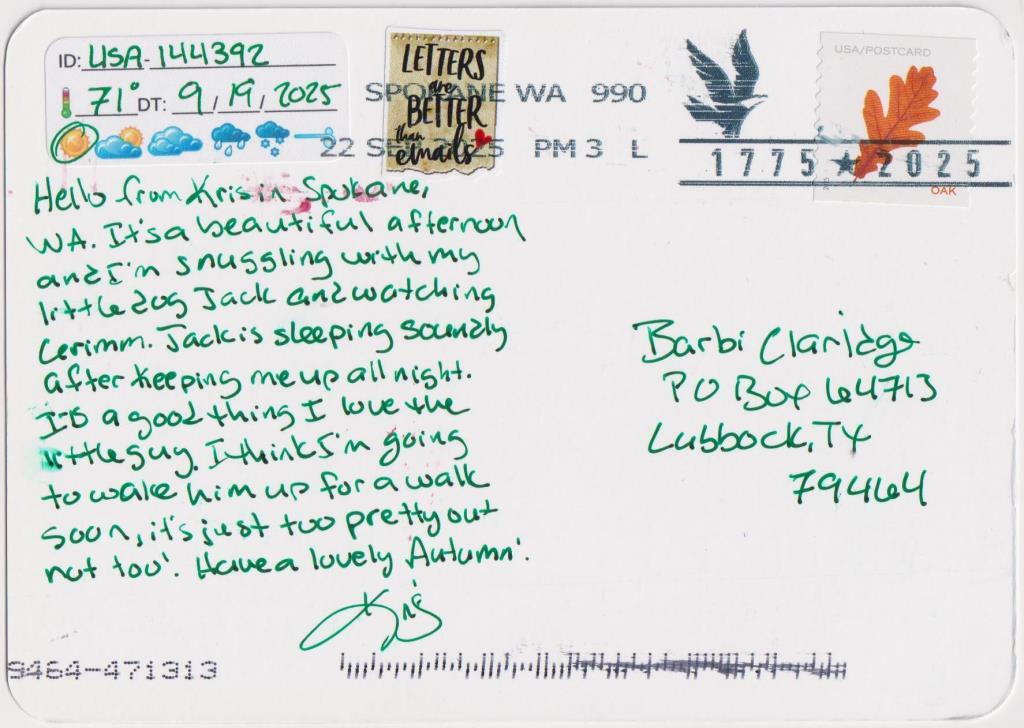 ID: USA-144392
71° DT: 9/19/2025
LETTERS
are
BETTER
than
emails
SPOKANE WA 990
22 SEP 2025 PM 3 L
USA/POSTCARD
1775 ★ 2025
OAK
Hello from Kris in Spokane,
WA. It's a beautiful afternoon
and I'm snuggling with my
little dog Jack and watching
Cerimm. Jack is sleeping soundly
after keeping me up all night.
It's a good thing I love the
little guy. I think I'm going
to wake him up for a walk
soon, it's just too pretty out
not too! Have a lovely Autumn!
Kris
Barbi Claridge
PO Box 64713
Lubbock, TX
79464
9464-471313